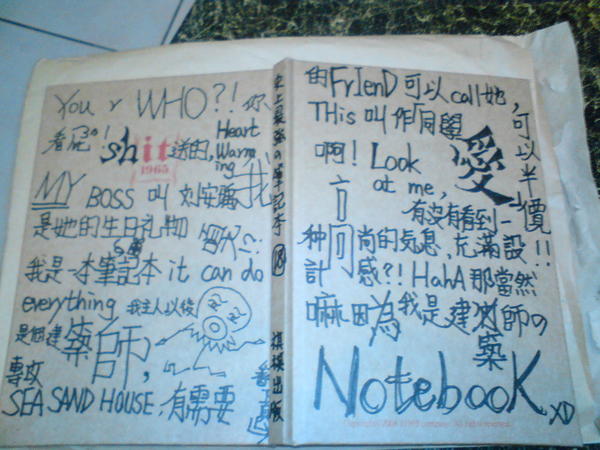 You r WHO?! 你
看屁!
shit 送的,
Heart
Warm
ing
我
1965
MY BOSS 叫
是她的生日礼物
!?
我是一本筆記本 it can do
everything 我主人以後
是個建築師,
專攻
SEA SAND HOUSE,有需要
史上最強の筆記本
出版
的FrIenD可以call她,可以半價!!
THis叫作同學
愛
啊! Look
at me,
有沒有看到一
種時尚的氣息,充滿設
計感?! HahA 那當然
嘛因為我是建築師の
NotebooK XD